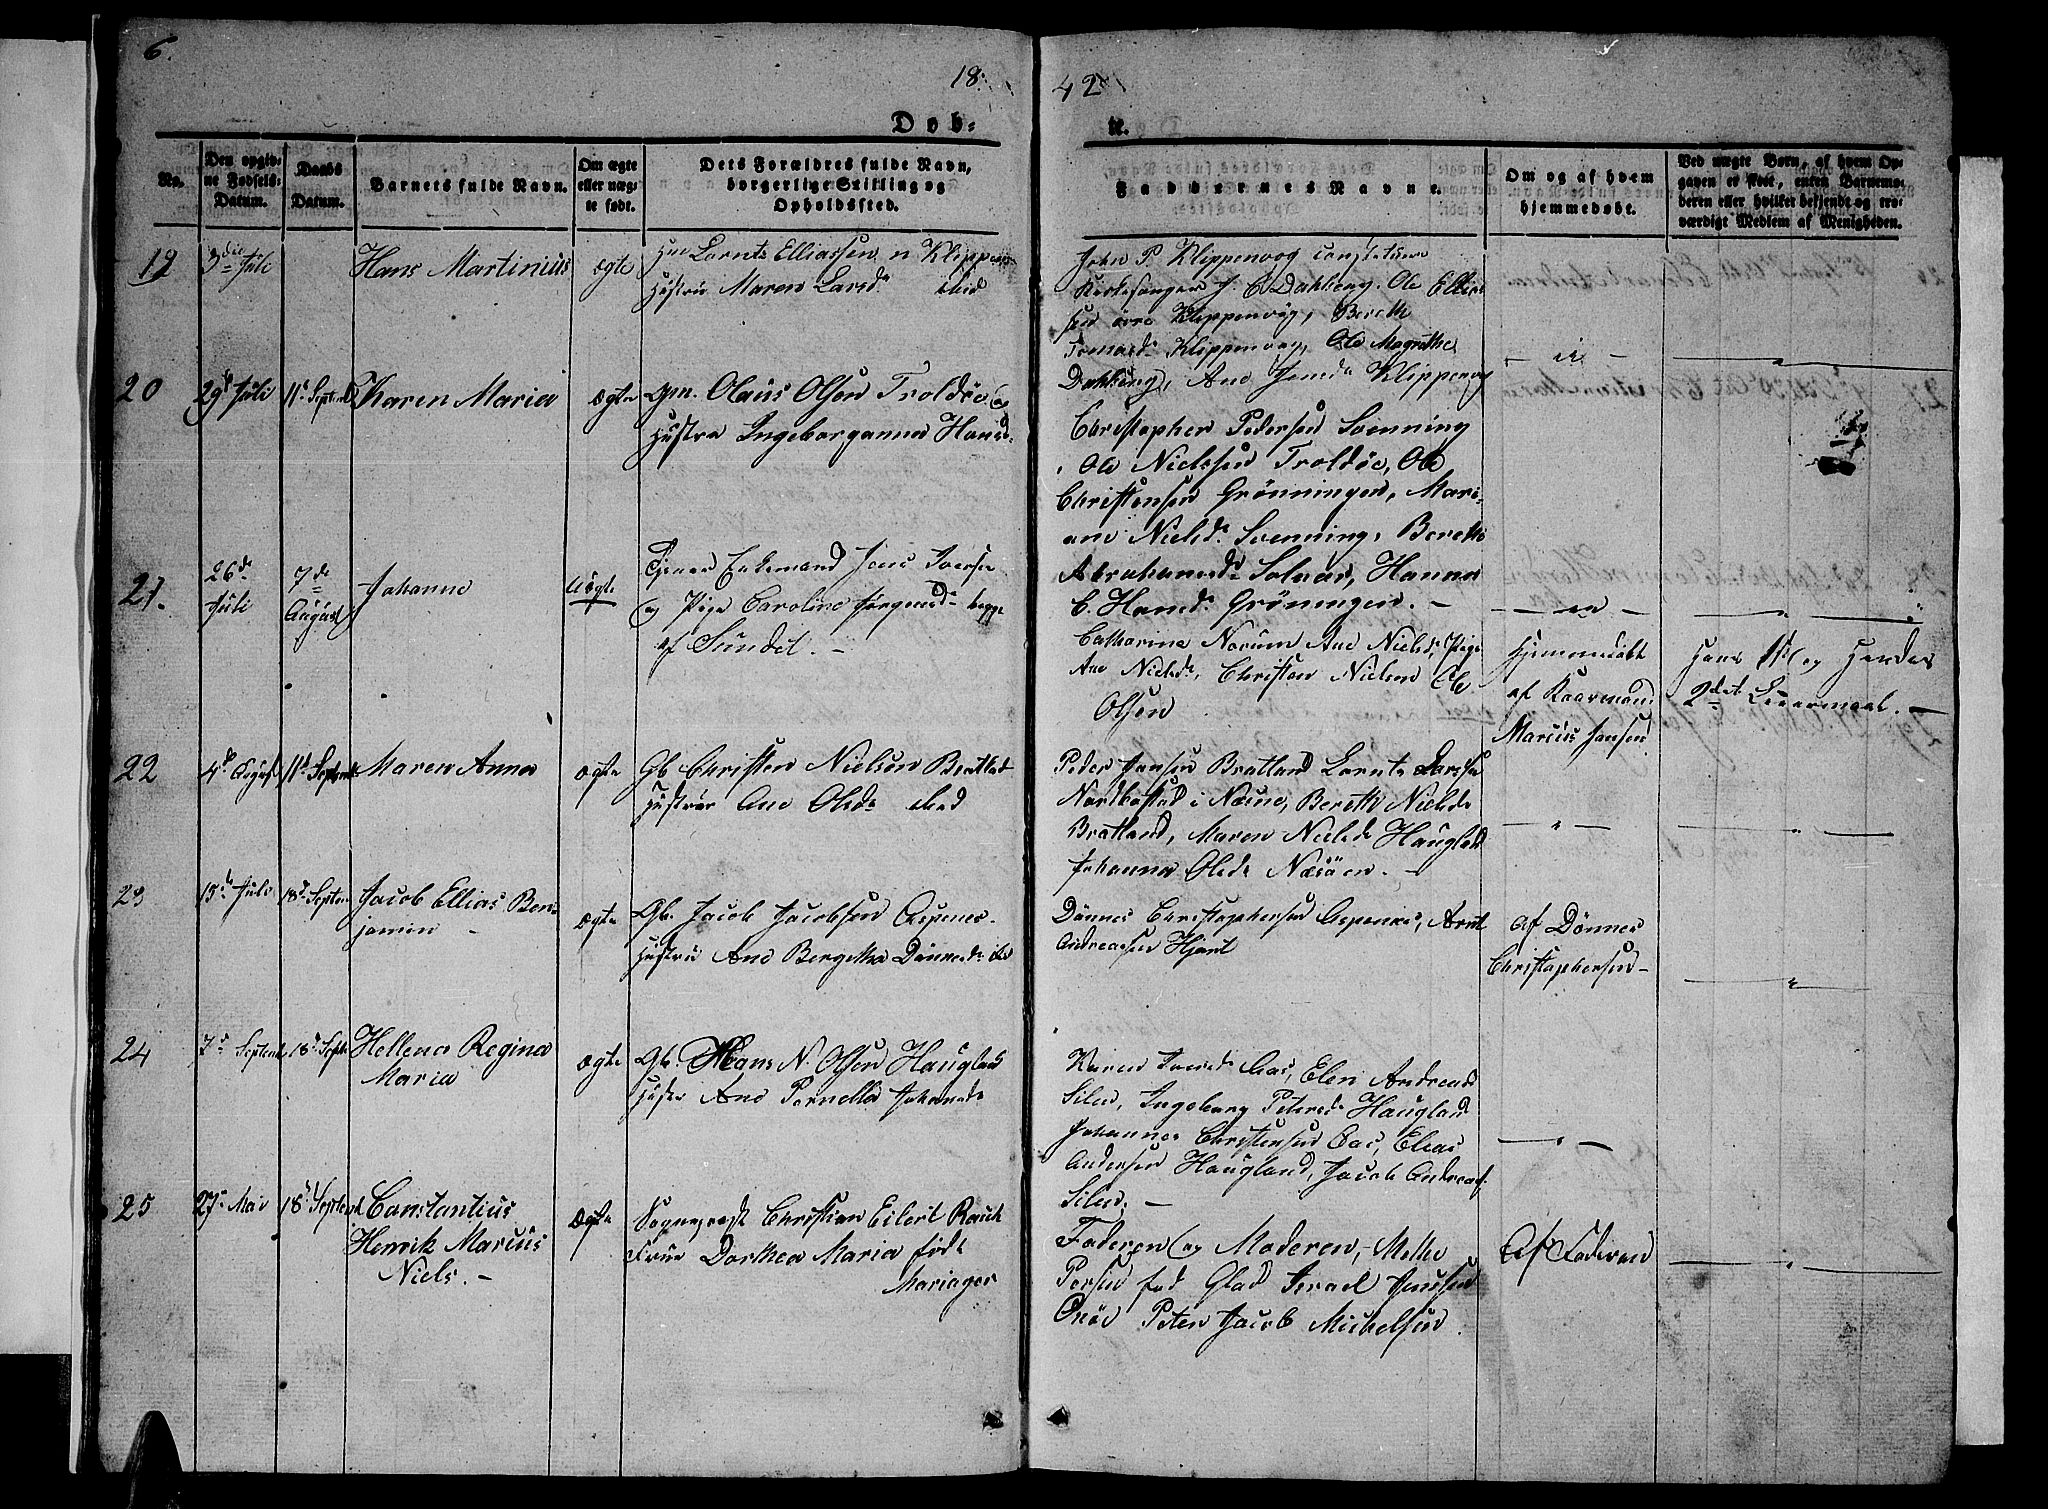 6.
18 42
Døb= te.
No.
Den opgiv=
ne Fødsels=
Datum.
Daabs
Datum.
Barnets fulde Navn.
Om ægte
eller uæg=
te født.
Dets Forældres fulde Navn,
borgerlige Stilling og
Opholdssted.
Faddernes Navne.
Om og af hvem
hjemmedøbt.
Ved uægte Børn, af hvem Op=
gaven er skeet, enten Barnemo=
deren eller hvilket bekjendt og tro=
værdigt Medlem af Menigheden.
19
3die Juli
Hans Martinius
ægte
Lornts Elliassen
Hustru Maren Larsd.
John P Klippenvog
Kirkesanger J. C. Dahlberg. Ole Ellias
sen øvre Klippenvog, Bereth
Klippenvog, Ole Magrethe
Dahlberg, Ane Klippenvog
20
29de Juli
11te Septemb
Karen Maria
ægte
gm. Olaus Olsen Troldøe og
Hustru Ingeborganna Hansd.
Christopher Pedersen Svenning
Ole Nielssen Troldøe, Ole
Christensen Grønningen, Mari=
ane Nielsd. Svenning, Bereth
Abrahamsd. Solvær, Hanna
C. Hansd. Grøningen. -
21.
26de
Juli
7de
August
Johanne
Uægte
Enkemand Jens Iversen
og Pige Caroline Jørgensd. begge
af Sundet. -
Catharina Norum Ane Nielsd, Pige
Ane Nielsd., Christen Nielsen Ole
Olsen
Hjemmedøbt
af Kaarmand
Marcus Jansen
Hans 1ste og Hendes
2det Leiermaal. -
22
4de August
11te Septemb
Maren Anna
ægte
Gb Christen Nielsen Bratland
Hustru Ane Olsd.
Peder Jansen Bratland Lornts Larssen
i Næsne, Bereth Nielsd.
Bratland, Maren Nielsd. Haugland
Johanna Olsd. Næsöen. -
23
15de Juli
18d Septem
Jacob Ellias Ben=
jamin -
ægte
Gb. Jacob Jacobsen Aspenes
Hustru Ane Bergetha Dønnesd.
Dönnes Christophersen Aspenes, Arnt
Andreassen Hjart
af Dönnes
Christophersen -
24
7d Septemb
18d Septbr
Hellena Regina
Maria
ægte
Gb. Hans N. Olsen Haugland
Hustru Ane Pernella Johansd.
Karen Iversd. Aas, Elen Andreasd.
Silen, Ingeborg Petersd. Haugland
Johannes Christensen Aas, Elias
Andersen Haugland, Jacob Andreas.
Silen. -
25
27de Mai
18d Septemb
Constantius
Henrik Marcus
Niels. -
ægte
Sognepræst Christian Eilert Rasch
Frue Dorthea Maria født
Mariager
Faderen og Moderen, Mette
Persen fød Glad Israel Jenssen
Onöe Peter Jacob Michelsen.
Af Faderen